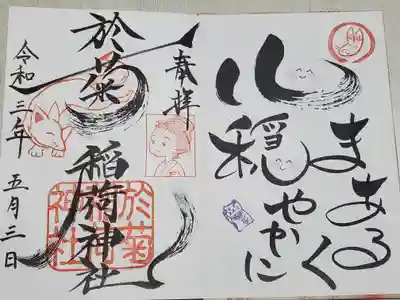 まあるく
心穏やかに
奉拝
於菊稲荷神社
令和三年
五月三日
於菊
稲荷
神社